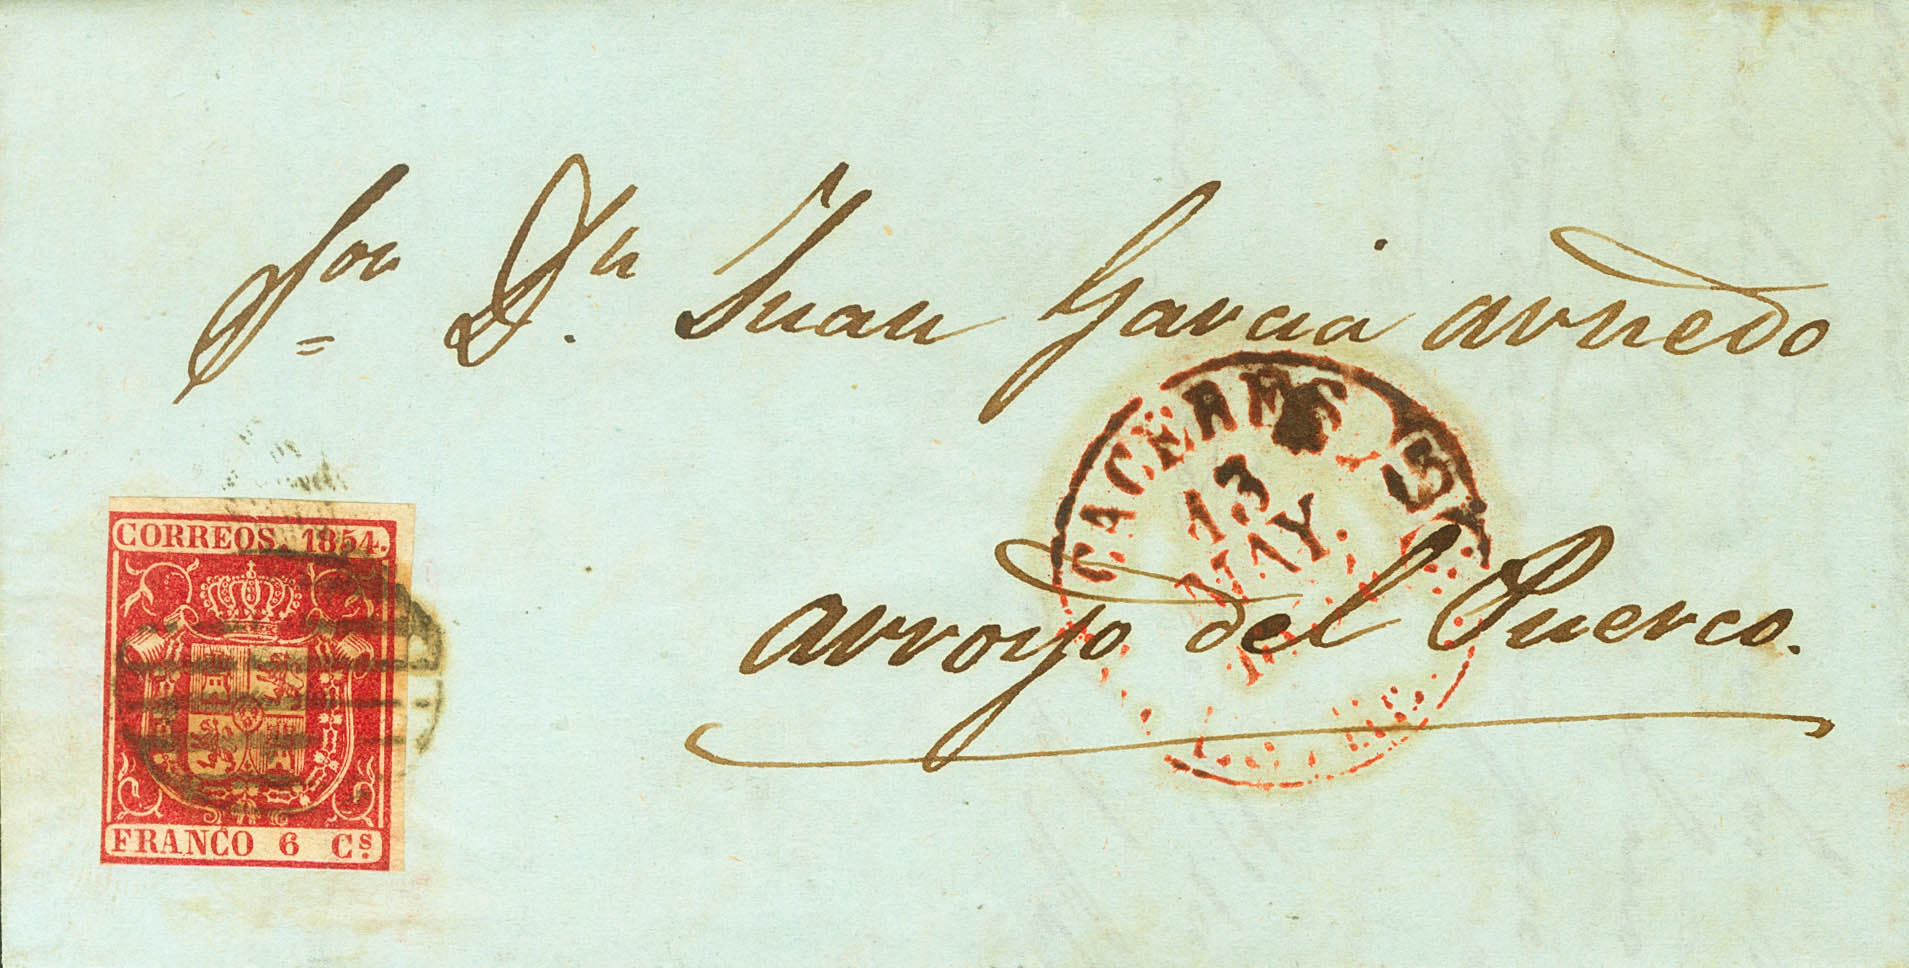 Sor Dn. Juan Garcia arnedo
arroyo del Puerco.
CACERES
13
MAY.
CORREOS. 1854.
FRANCO 6 Cs.